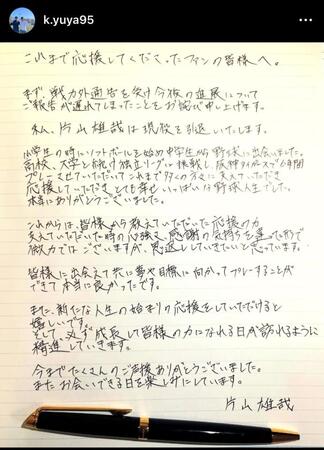 k.yuya95
これまで応援してくださったファンの皆様へ。
まず、戦力外通告を受け今後の進展について
ご報告が遅れてしまったことをお詫び申し上げます。
私、片山雄哉は現役を引退いたします。
小学生の時にソフトボールを始め中学生から野球に出会いました。
高校、大学と続け独立リーグに挑戦し阪神タイガースで6年間
プレーさせていただいてこれまで多くの方々に支えていただき
応援していただきとても幸せいっぱいな野球人生でした。
本当にありがとうございました。
これからは、皆様から教えていただいた応援の力
支えていただいた時の心強さ、感謝の気持ちを
微力ではございますが、恩返ししていきたいと思っています。
皆様に出会えて共に夢や目標に向かってプレーすることが
できて本当に良かったです。
また、新たな人生の始まりの応援をしていただけると
嬉しいです。
そして、必ず成長して皆様の力になれる日が訪れるように
精進していきます。
今までたくさんのご声援ありがとうございました。
またお会いできる日を楽しみにしています。
片山雄哉